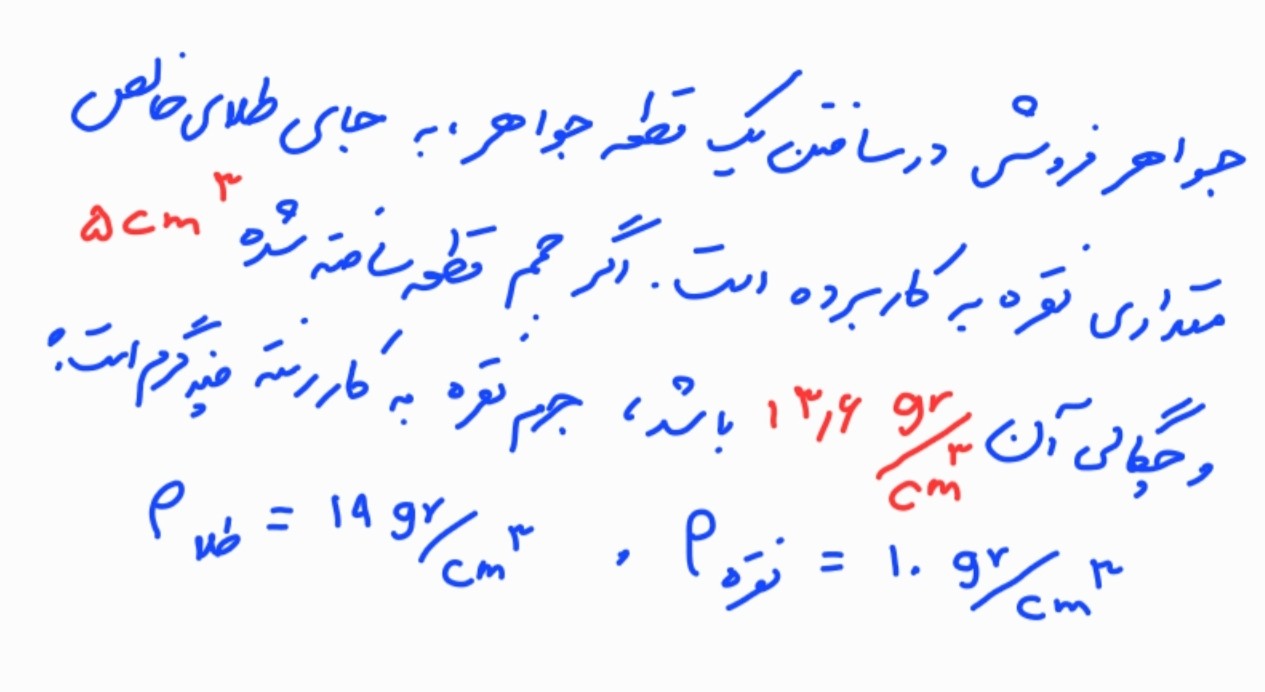 جواهر فروشی در ساختن یک قطعه جواهر، به جای طلای خالص
مقداری نقره به کار برده است. اگر حجم قطعه ساخته شده ۵cm³
و چگالی آن ۱۳٫۶ gr/cm³ باشد، جرم نقره به کار رفته چند گرم است؟
ρ نقره = ۱۰ gr/cm³ ، ρ طلا = ۱۹ gr/cm³